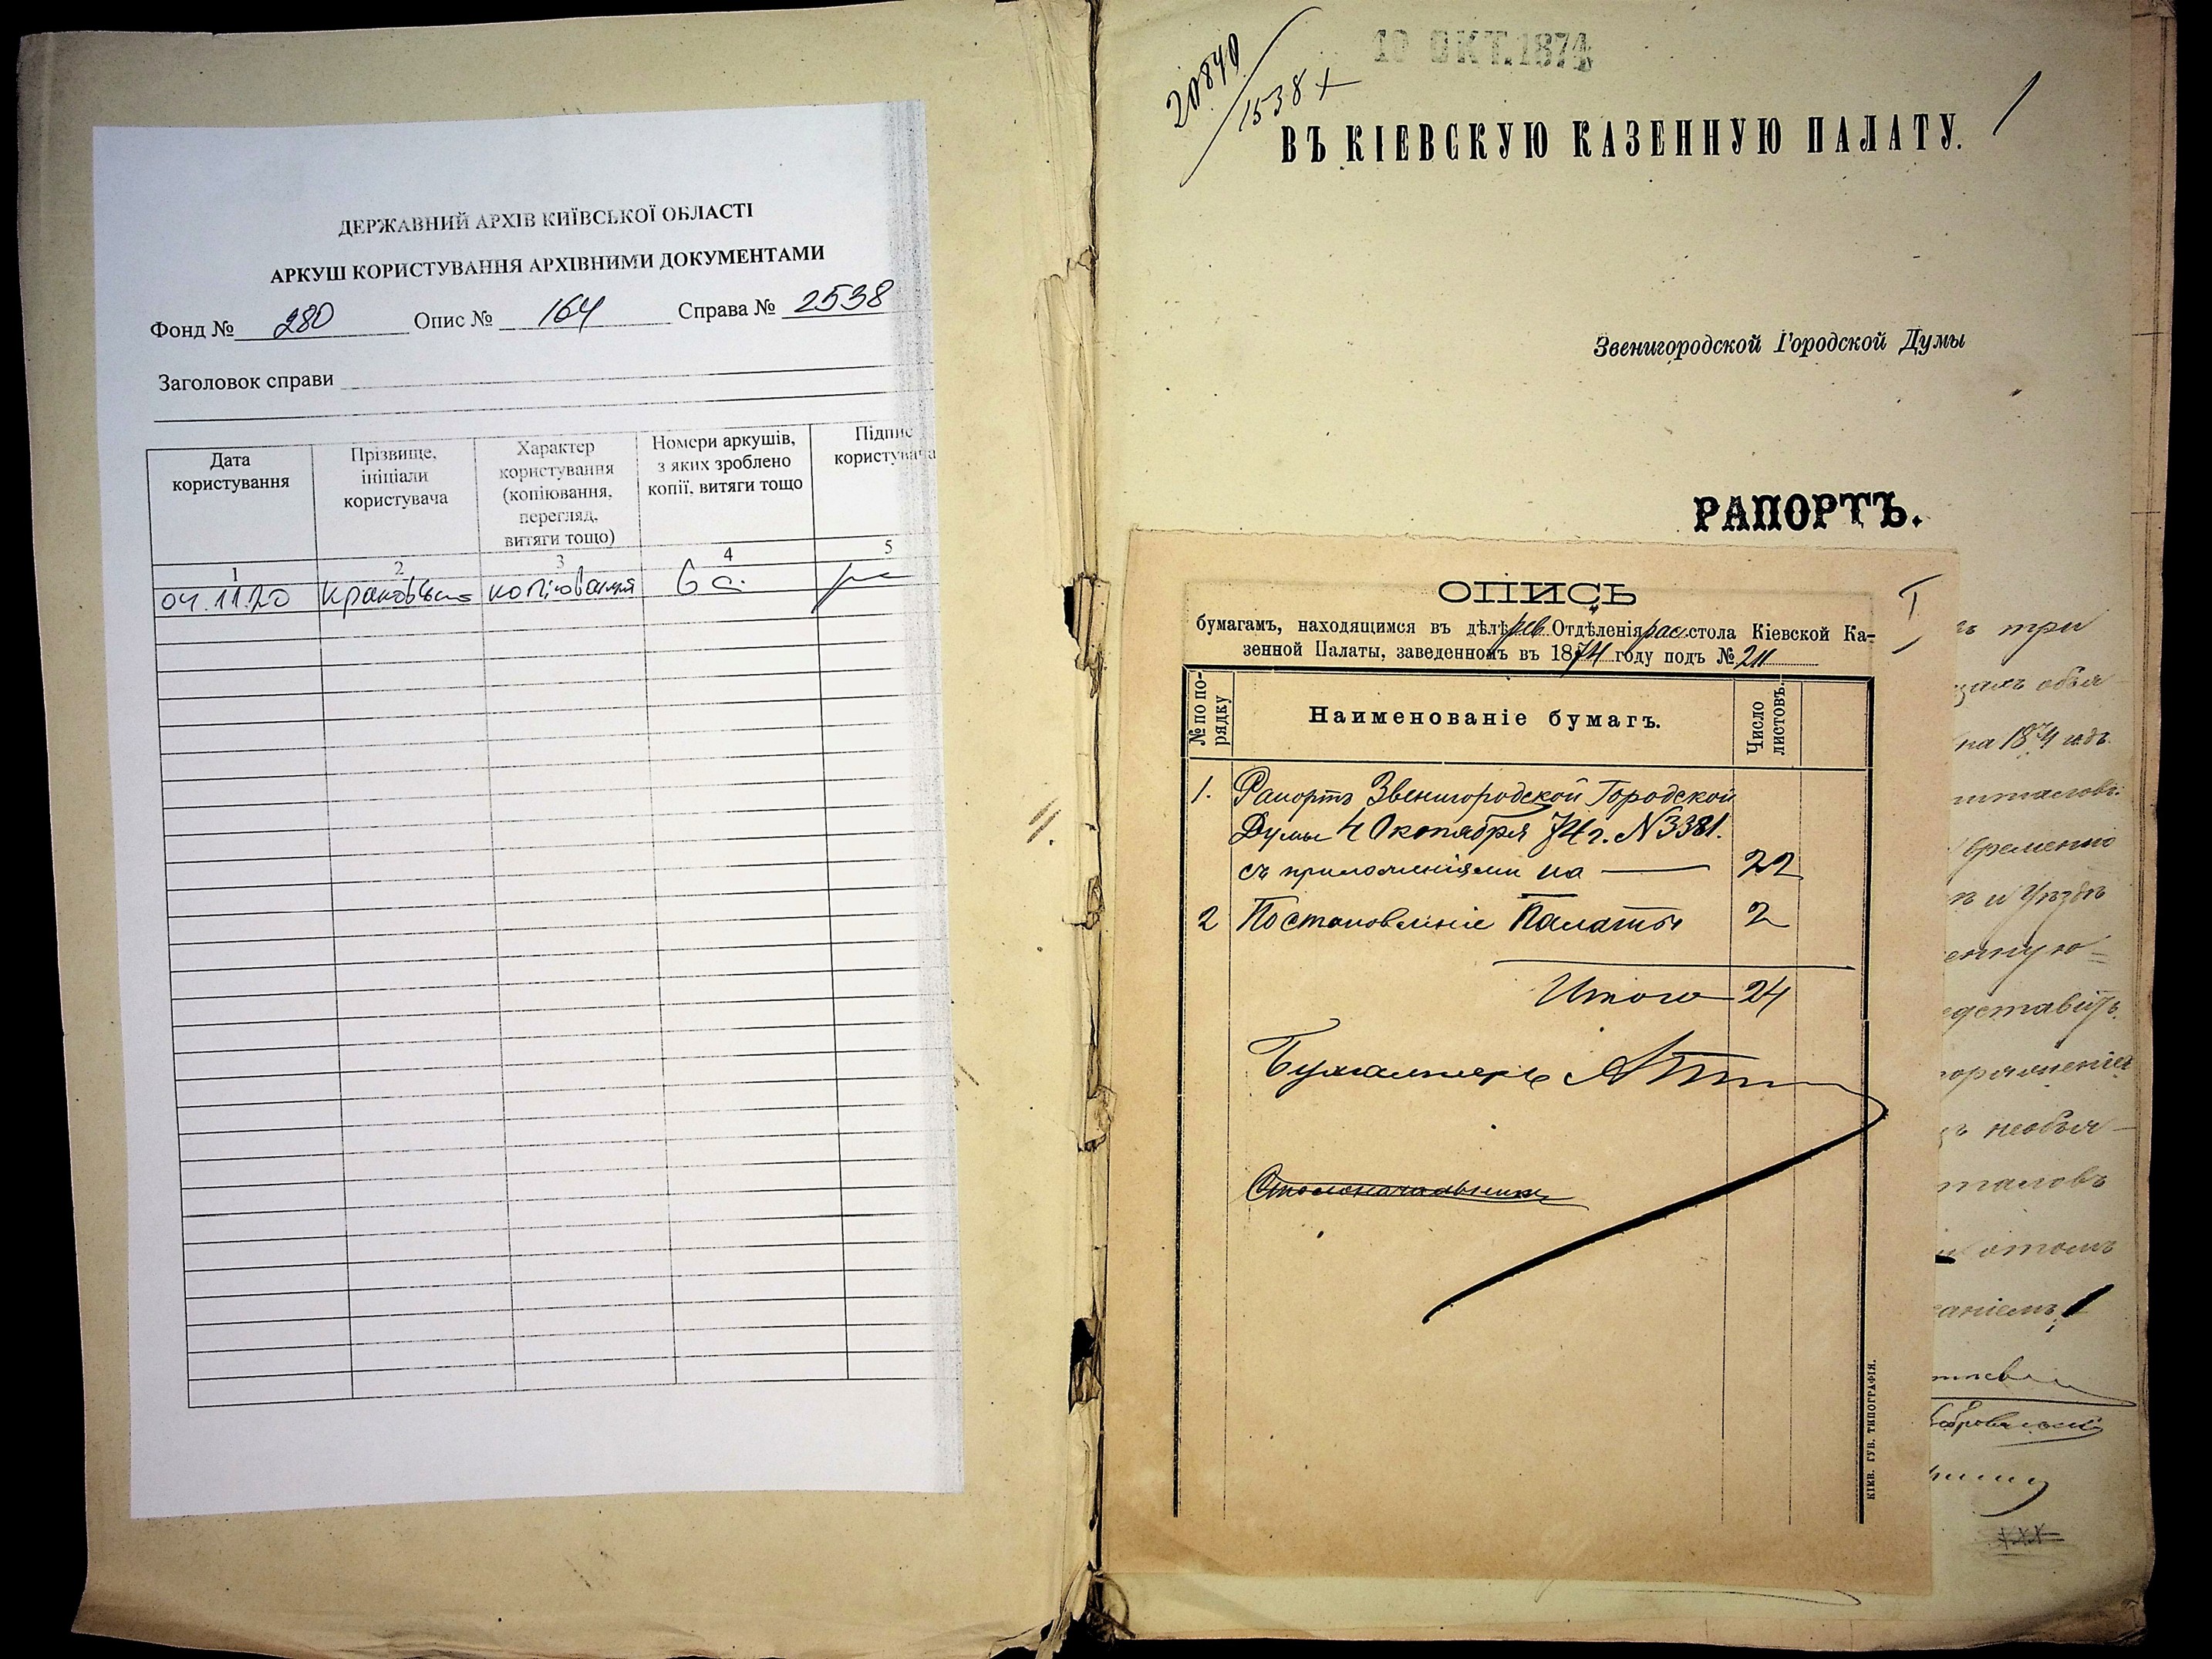 ДЕРЖАВНИЙ АРХІВ КИЇВСЬКОЇ ОБЛАСТІ
АРКУШ КОРИСТУВАННЯ АРХІВНИМИ ДОКУМЕНТАМИ
Фонд № 280 Опис № 164 Справа № 2538
Заголовок справи
Дата користування
Прізвище, ініціали користувача
Характер користування (копіювання, перегляд, витяги тощо)
Номери аркушів, з яких зроблено копії, витяги тощо
Підпис користувача
1 2 3 4 5
04.11.20 копіювання
10 ОКТ. 1874
20840
1538
ВЪ КІЕВСКУЮ КАЗЕННУЮ ПАЛАТУ.
Звенигородской Городской Думы
РАПОРТЪ.
ОПИСЬ
бумагамъ, находящимся въ дѣлѣ рев. Отдѣленія рас. стола Кіевской Ка-
зенной Палаты, заведенномъ въ 1874 году подъ № 211
№ по по-
рядку
Наименованіе бумагъ.
Число
листовъ.
1. Рапортъ Звенигородской Городской
Думы 4 Октября 74 г. N 3381.
съ приложеніями на — 22
2 Постановленіе Палаты 2
Итого 24
Бухгалтеръ
Столоначальникъ
КІЕВ. ГУБ. ТИПОГРАФІЯ.
три
на 1874 годъ
временно
и Уѣздъ